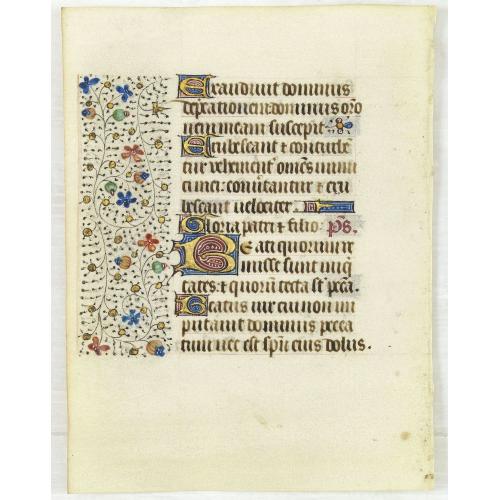 Exaudivit dominus
deprecationem: dominus oro
nem meam suscepit
Erubescant & conturbe
tur vehementer omēs inimi
ci mei: convertantur & eru
bescant velociter.
Gloria patri & filio. ps.
Beati quorum re
misse sunt iniqi
tates: & quorū tecta st̄ pcā.
Beatus vir cui non im
putavit dominus pecca
tum nec est spū eius dolus.